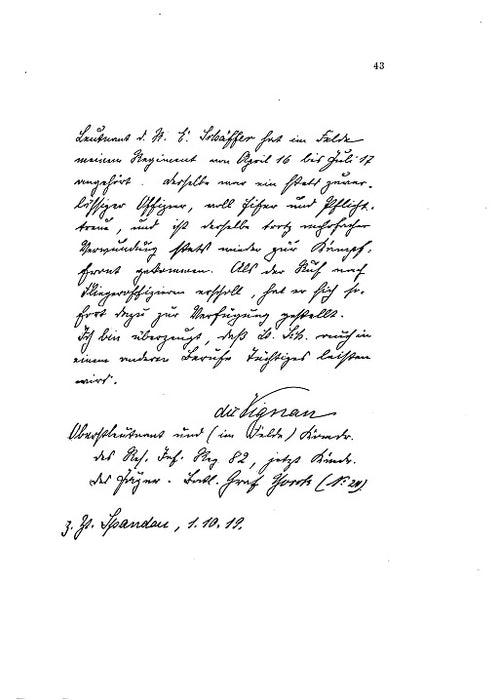 43
Leutnant d. R. E. Schäffer hat im Felde
meinem Regiment von April 16 bis Juli 17
angehört. Derselbe war ein stets zuver-
lässiger Offizier, voll Eifer und Pflicht-
treue, und ist derselbe trotz mehrfacher
Verwundung stets wieder zur Kampf-
front gekommen. Als der Ruf nach
Fliegeroffizieren erscholl, hat er sich so-
fort dazu zur Verfügung gestellt.
Ich bin überzeugt, daß Lt. Sch. auch in
einem anderen Berufe Tüchtiges leisten
wird.
du Vignau
Oberstleutnant und (im Felde) Kmdr.
des Res. Inf. Reg. 82, jetzt Kmdr.
des Jäger-Batl. Graf Yorck (N. 20)
z. Zt. Spandau, 1.10.19.